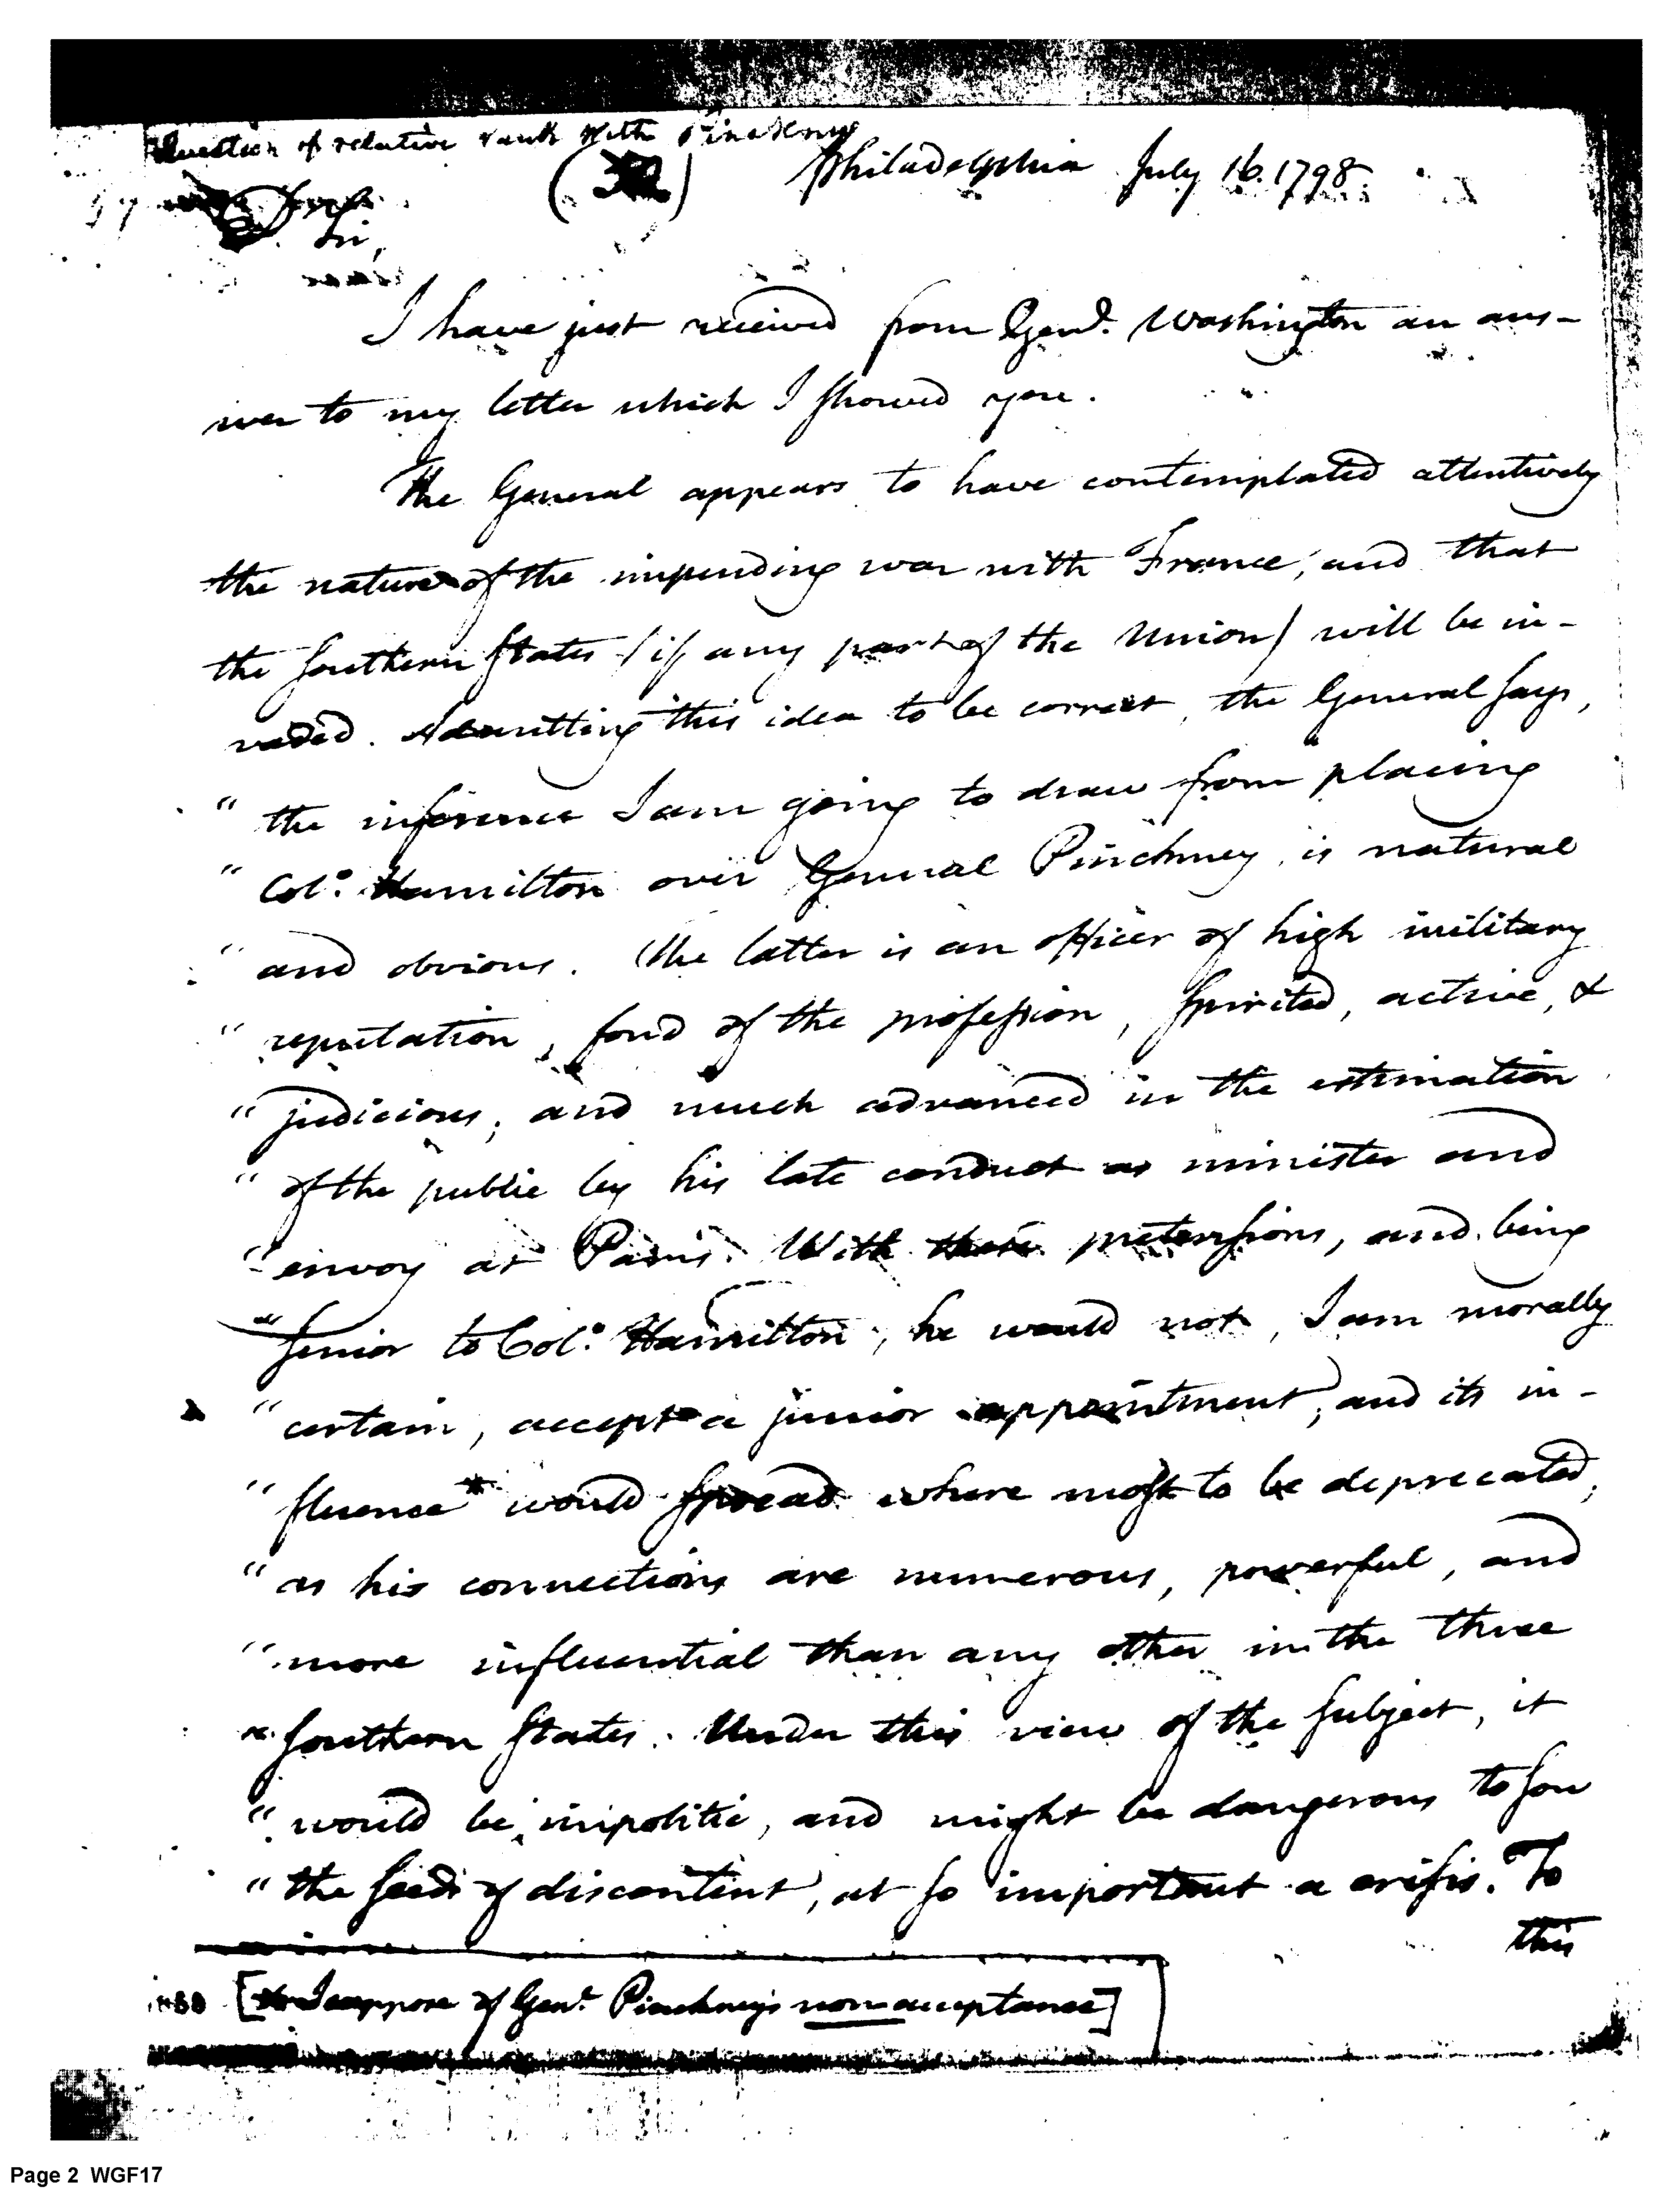 Question of relative rank with Pinckney
Philadelphia July 16. 1798.
Sir,
I have just received from Genl. Washington an ans-
wer to my letter which I showed you.
The General appears to have contemplated attentively
the nature of the impending war with France; and that
the southern states (if any part of the Union) will be in-
vaded. Admitting this idea to be correct, the General says,
" the inference I am going to draw from placing
" Colo. Hamilton over General Pinckney, is natural
" and obvious. The latter is an officer of high military
" reputation, fond of the profession, spirited, active, &
" judicious; and much advanced in the estimation
" of the public by his late conduct as minister and
" envoy at Paris. With these pretensions, and being
" senior to Colo. Hamilton, he would not, I am morally
" certain, accept a junior appointment; and its in-
" fluence* would spread where most to be deprecated,
" as his connections are numerous, powerful, and
" more influential than any other in the three
" southern states. Under this view of the subject, it
" would be impolitic, and might be dangerous to sow
" the seeds of discontent, at so important a crisis. To
this
[* I suppose of Genl. Pinckney's non-acceptance]
Page 2 WGF17